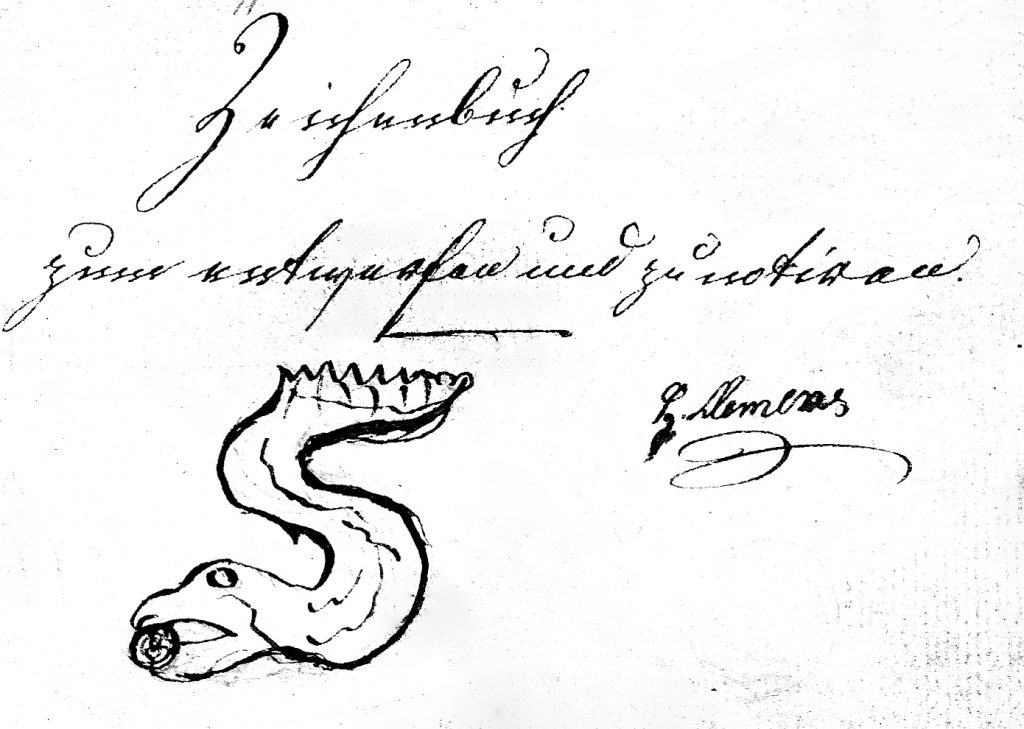 Zeichenbuch
zum entwerfen und zu notiren.
H. Clemens